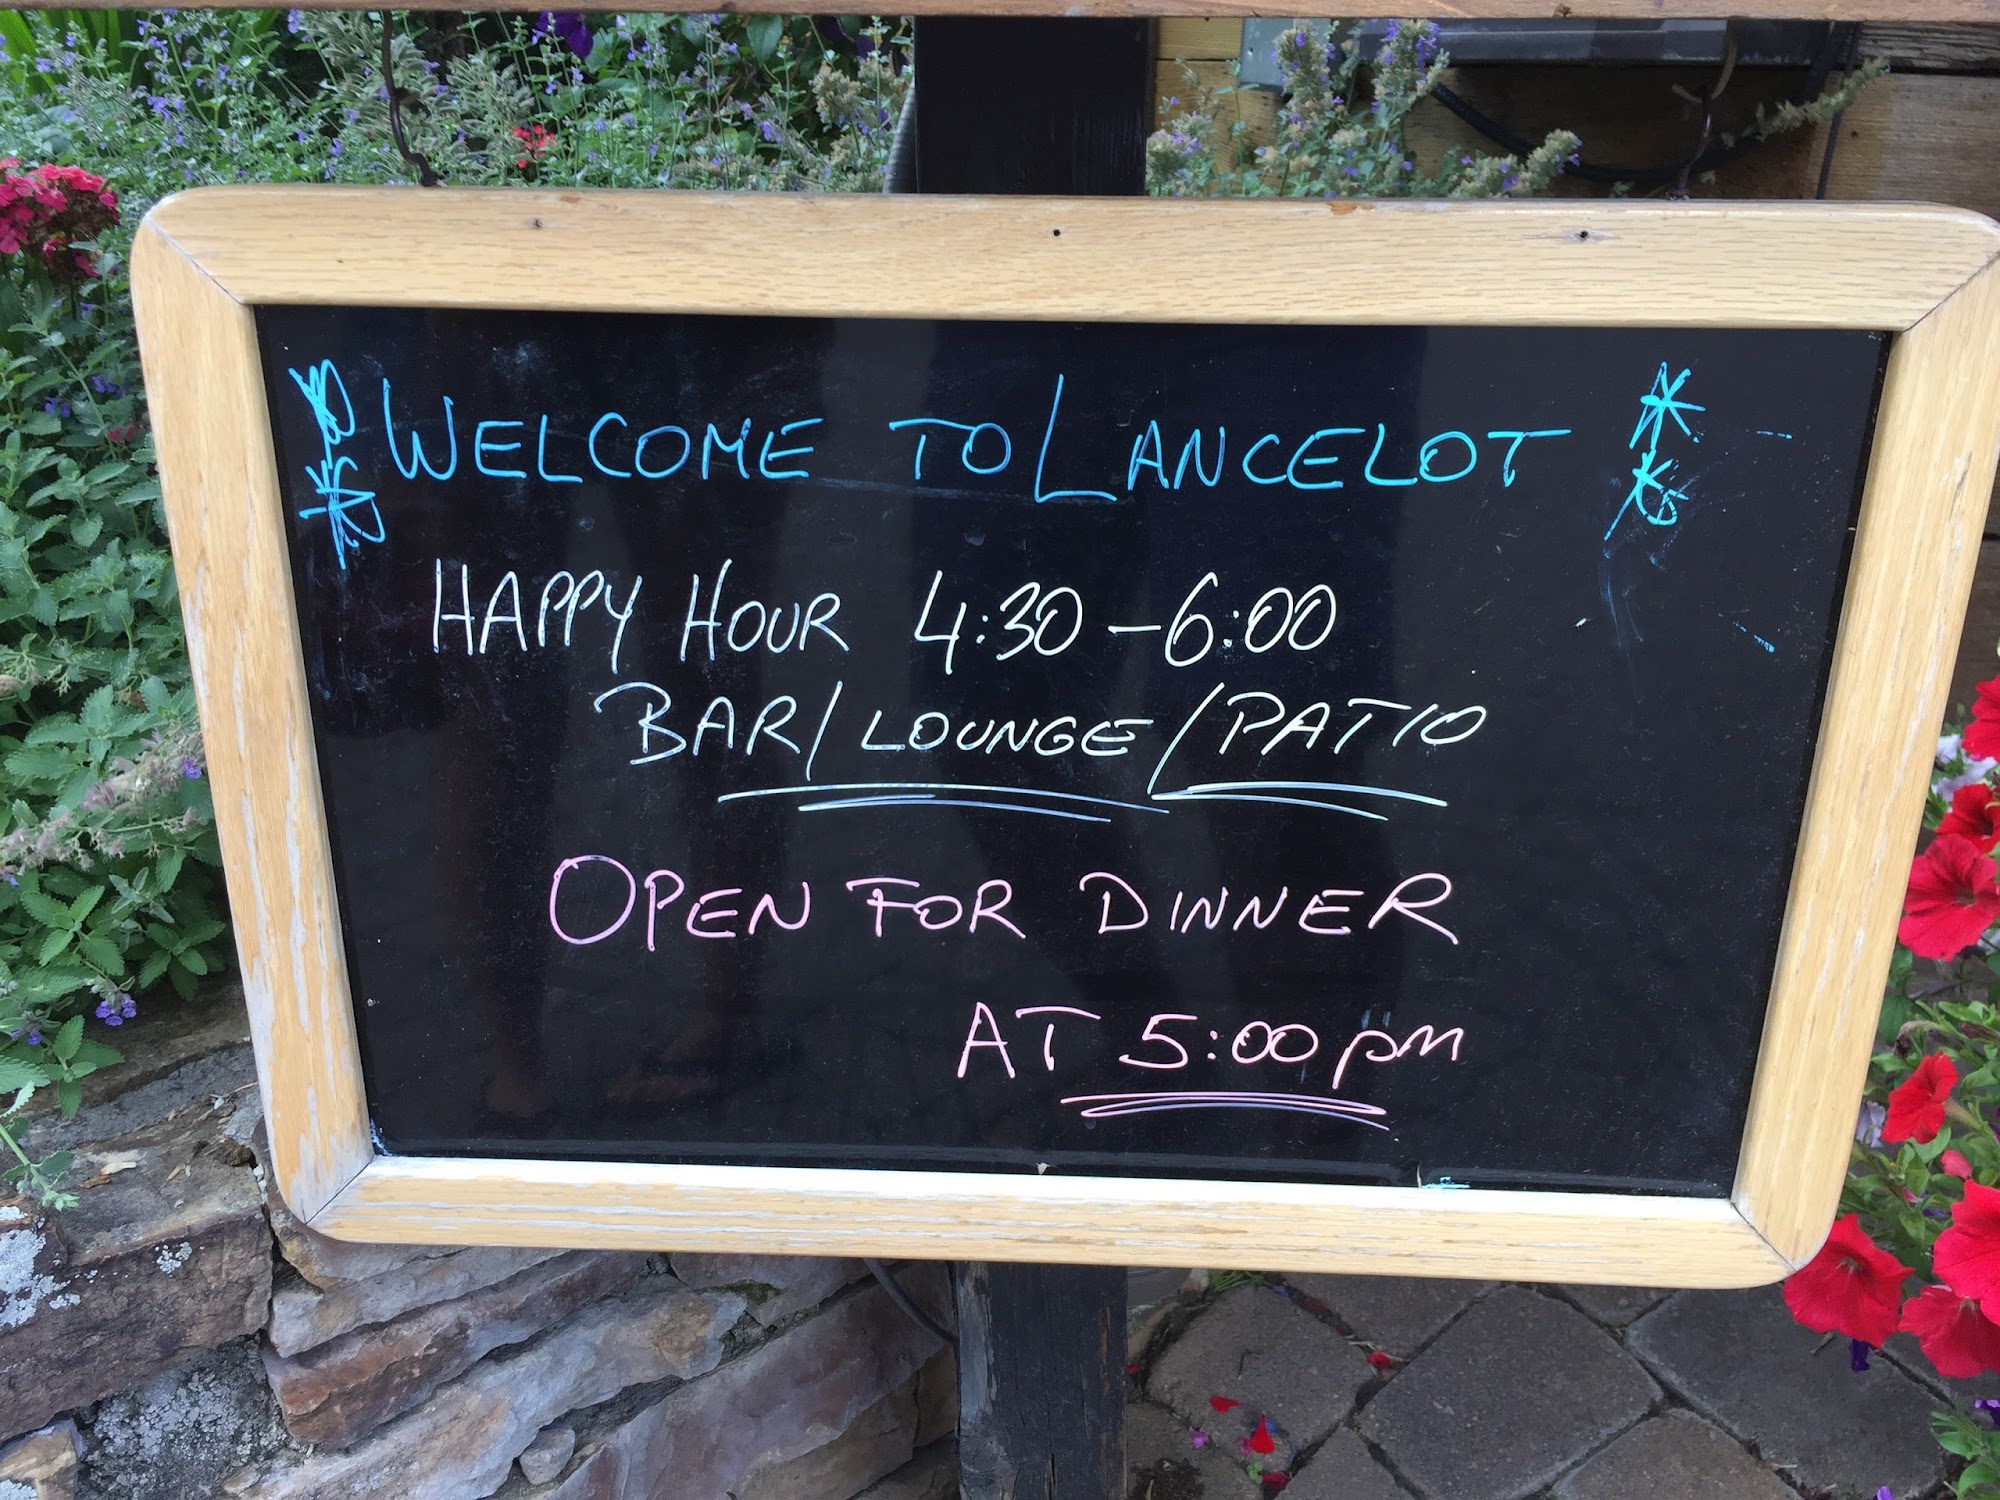 WELCOME TO LANCELOT
HAPPY HOUR 4:30 - 6:00
BAR/LOUNGE/PATIO
OPEN FOR DINNER
AT 5:00 pm